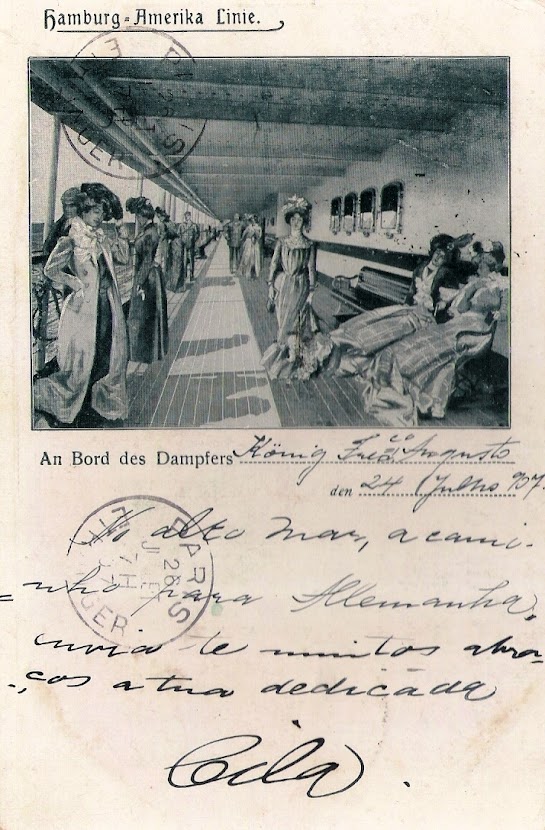 Hamburg-Amerika Linie.
An Bord des Dampfers König Fried Augusto
den 24 Julho 907
No alto mar, a cami-
=nho para Allemanha,
envia te muitos abra-
-ços a tua dedicada
Cila.
PARIS
26
ETRANGER